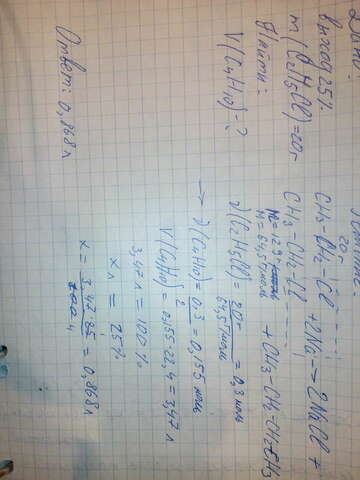 Дано:
выход 25%
m(C2H5Cl)=20г
Найти:
V(C4H10)-?
20г
CH3-CH2-Cl + 2Na → 2NaCl +
CH3-CH2-Cl
+ CH3-CH2-CH2-CH3
M=64,5г/моль
ν(C2H5Cl)= 20г / 64,5г/моль = 0,3 моль
→ ν(C4H10)= 0,3 / 2 = 0,155 моль
V(C4H10)= 0,155·22,4=3,47 л
3,47 л = 100%
x л = 25%
x = 3,47·25 / 100 = 0,868 л
Ответ: 0,868 л